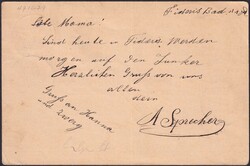 Fideris Bad
Liebe Mama!
Sind heute in Fideris. Werden
morgen auf den Junker
Herzlichen Gruss von uns
allen
dein
A Sprecher
Gruss an Hanna